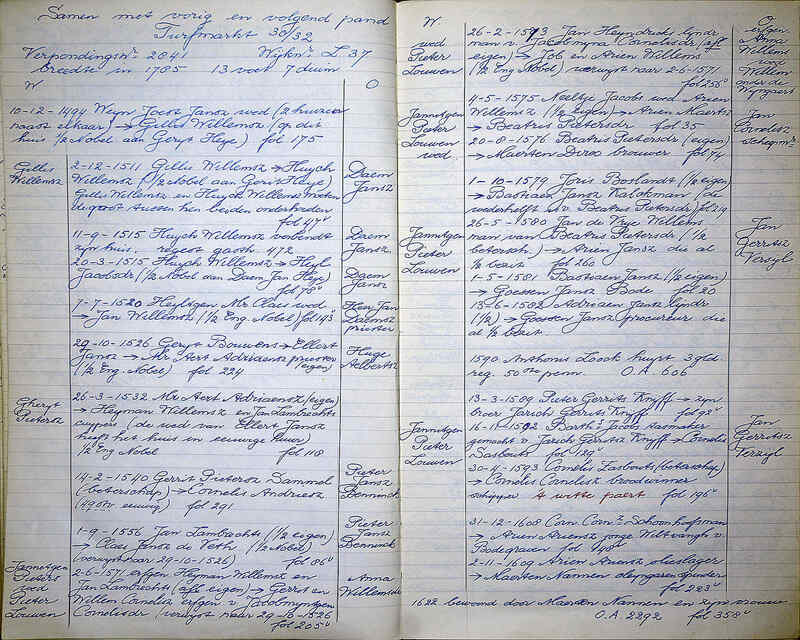 Samen met vorig en volgend pand
Turfmarkt 30/32
Verpondingsnr. 2041 Wijknr. L 37
breedte in 1785 13 voet 7 duim
W O
10-12-1494 Wyn Joost Jansz wed (2 huizen
naast elkaar) → Gillis Willemsz (op dit
huis 1/2 Nobel aan Geryt Heye) fol 175
Gillis
Willemsz
2-12-1511 Gillis Willemsz → Huych
Willemsz (1/2 Nobel aan Gerit Heye)
Gillis Willemsz en Huych Willemsz moeten
de goot tussen hen beiden onderhouden
fol 47v
Daem
Jansz
11-9-1515 Huych Willemsz verbendt
zyn huis. reg. gasth 472
20-3-1515 Huych Willemsz → Heyl
Jacobsdr (1/2 Nobel aan Daem Jan Heye)
fol 78v
Daem
Jansz
Daem
Jansz
7-7-1520 Heyltgen Mr Claes wed
→ Jan Willemsz (1/2 Eng. Nobel) fol 193
Heer Jan
Daemsz
priester
29-10-1526 Geryt Bouwensz → Ellert
Jansz → Mr Aert Adriaensz priester
(1/2 Eng Nobel) fol 224 (eigen)
Huge
Aelbertsz
Gheryt
Pietersz
26-3-1532 Mr Aert Adriaensz (eigen)
→ Heyman Willemsz en Jan Lambrechts
cuypers (de wed van Ellert Jansz
heeft het huis in eeuwige huur)
1/2 Eng Nobel fol 118
14-2-1540 Gerrit Pietersz Sammel
(beterschap) → Cornelis Andriesz
fol 291
Pieter
Jansz
Benninck
1-9-1556 Jan Lambrechts (1/2 eigen)
→ Claes Jansz de Veth (1/2 Nobel)
(verwyst naar 29-10-1526) fol 86v
Pieter
Jansz
Benninck
Jannetgen
Pieters
wed
Pieter
Louwen
2-6-1571 erffen Heyman Willemsz en
Jan Lambrechts (1/2 eigen) → Gerrit en
Willem Cornelisz erfgen v Jacobmyntgen
Cornelisdr (verwyst naar 29-10-1526
fol 205v
Anna
Willemsdr
W. O
wed
Pieter
Louwen
26-2-1573 Jan Heyndricks lyndr
man v Jacobmyna Cornelisdr (1/2
eigen) → Job en Arien Willems
(1/2 Eng Nobel) verwyst naar 2-6-1571
fol 256v
erfgen
Anna
Willems
wed
Willem
onder de
Wyngaert
Jannetgen
Pieter
Louwen
wed.
4-5-1575 Neeltje Jacobs wed Arien
Willemsz (1/2 eigen) → Arien Maertsz
→ Beatris Pietersdr. fol 35
20-8-1576 Beatris Pietersdr (eigen)
→ Maerten Dircx brouwer fol 74
Jan
Cornelisz
schepmr.
1-10-1579 Joris Boslandt (1/2 eigen)
→ Bastiaen Jansz Kalckman (de
wederhelft is v. Beatris Pietersdr) fol 219
Jannetgen
Pieter
Louwen
26-5-1580 Jan de Vrye Willems
man van Beatris Pietersdr (1/2
betersch.) → Arien Jansz die al
1/2 bezit fol 260
1-5-1581 Bastiaen Jansz (1/2 eigen)
→ Goossen Jansz Bode fol 20
13-6-1582 Adriaen Jansz lyndr
(1/2) → Goossen Jansz procureur die
al 1/2 bezit.
Jan
Gerritsz
Versyl
1590 Anthonis Loock huyst 3 gld.
reg. 50ste penn. O.A. 606
13-3-1589 Pieter Gerrits Knyff → zyn
broer Jarich Gerrits Knyff fol 92v
Jannetgen
Pieter
Louwen
16-11-1592 Barth. Jacobs
gemacht v. Jarich Gerrits Knyff → Cornelis
Sasbouts fol 129v
Jan
Gerritsz
Verzyl
30-4-1593 Cornelis Sasbouts (beterschap)
→ Cornelis Cornelisz broodwinner
schipper 't witte paert fol 196v
31-12-1608 Corn. Corn.z Schoonhefman
→ Arien Ariensz jonge Wiltvangh v
Bodegraven fol 148v
2-11-1609 Arien Ariensz olieslager
→ Maerten Nannen
fol 223v
1622 bewoond door Maerten Nannen en zyn vrouw
O.A. 2292 fol 358v